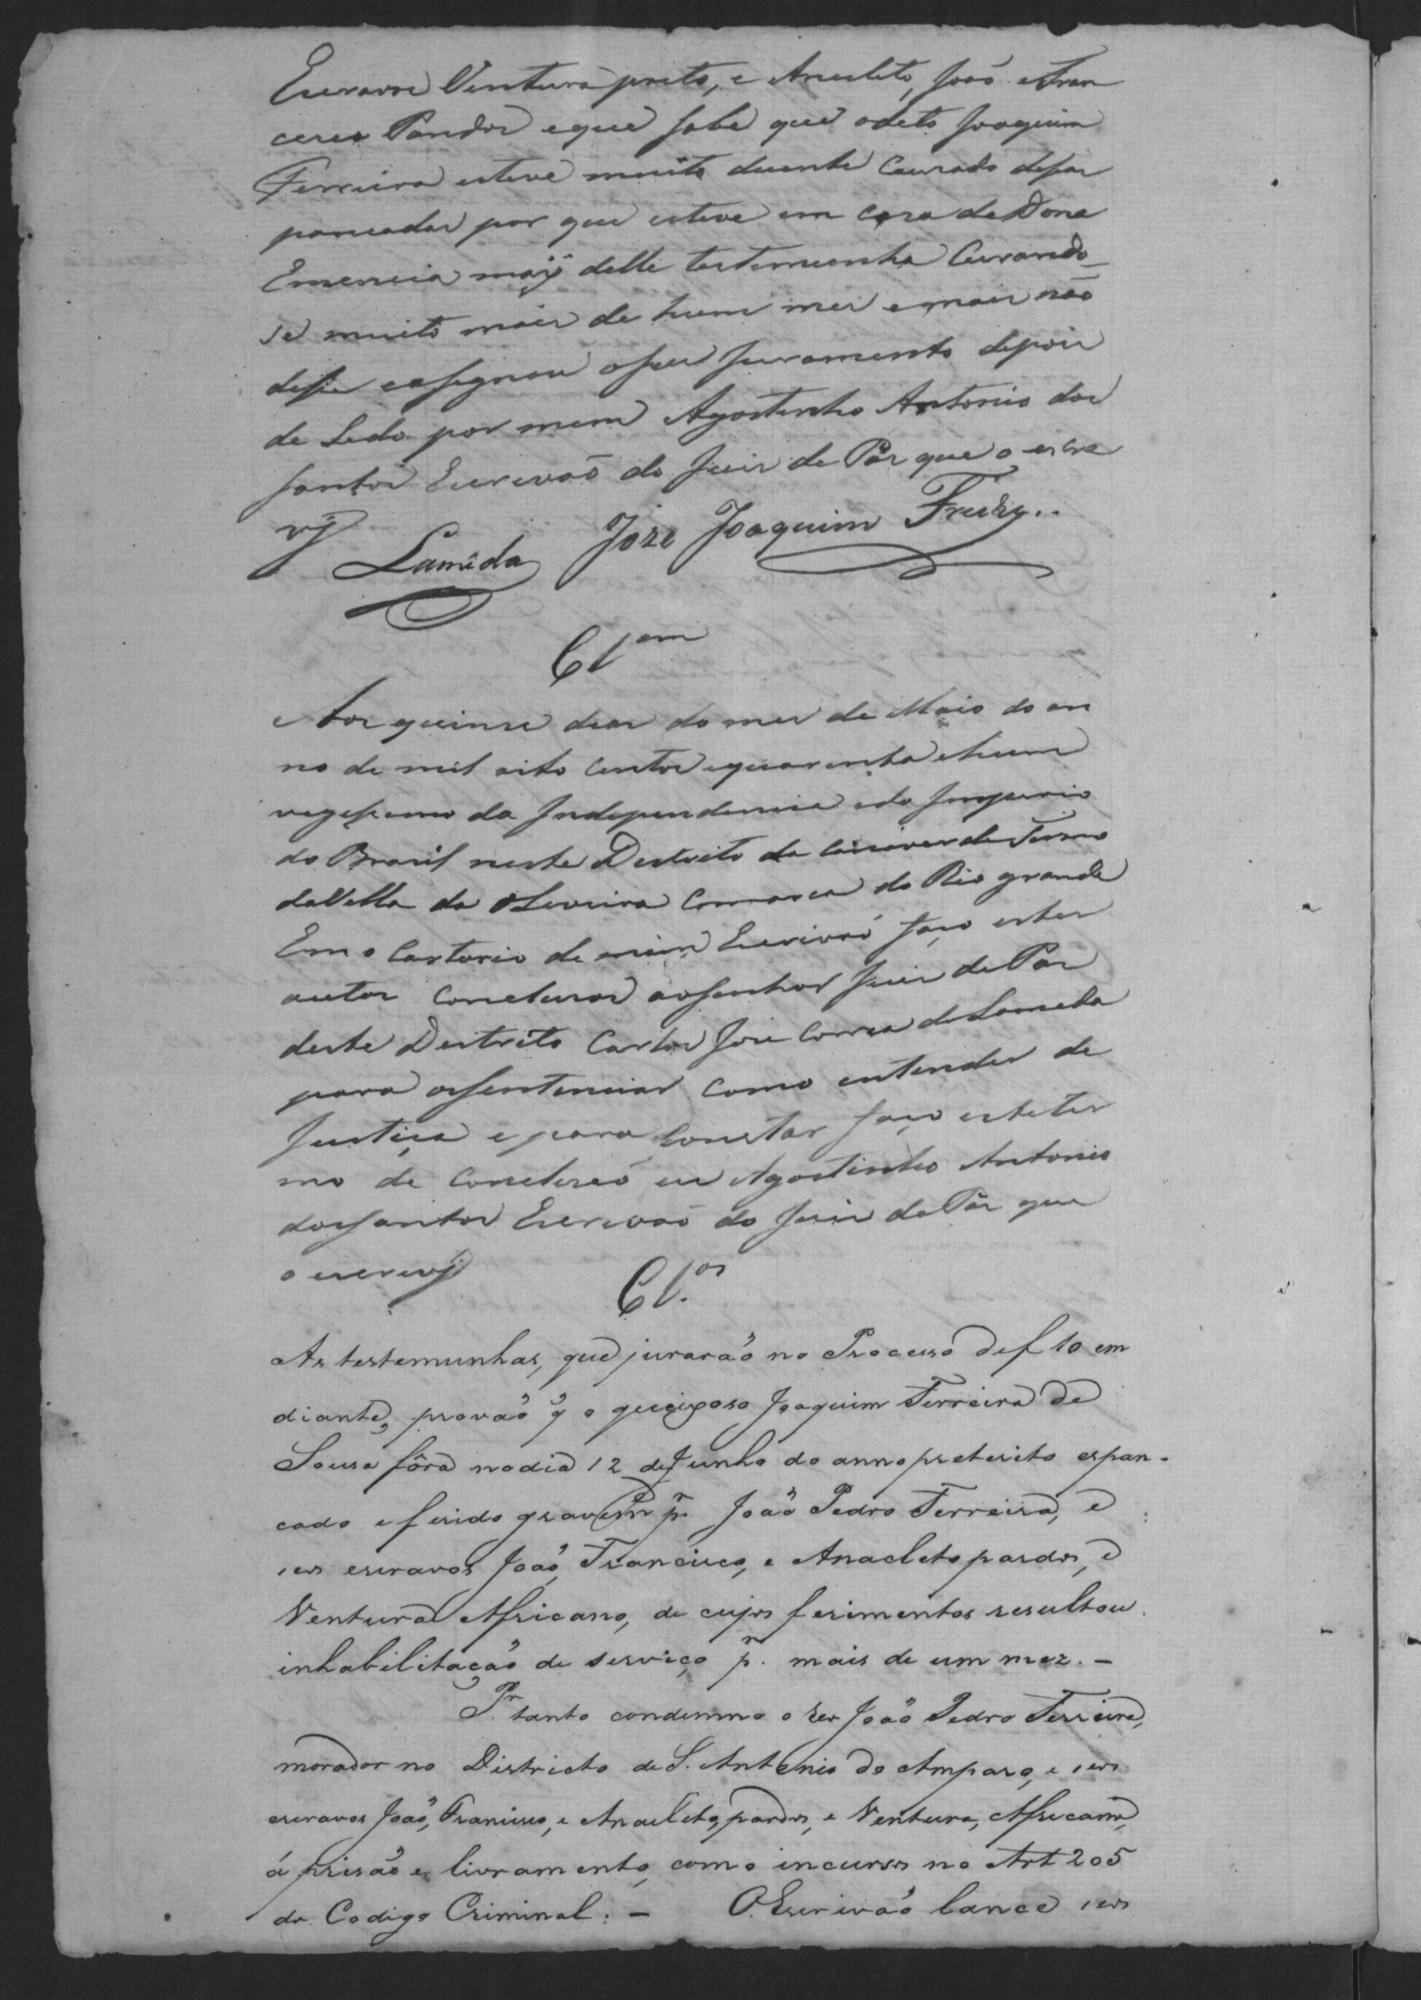 Escravos Ventura preto, e Anacleto, João eFran
cisco Pardos eque sabe que odito Joaquim
Ferreira esteve muito duente Cauzado desas
pancadas por que esteve em caza de Dona
Emerencia maỹ delle testemunha Curando
se muito mais de hum mes emais não
dise easignou oseu juramento depois
de Lido por mim Agostinho Antonio dos
santos Escrivaõ do Juis de Pas que o escre
vỹ Lamêda Joze Joaquim
Cl.am
Aos quinse dias do mes de Maio do an
no de mil oito centos equarenta ehum
vegesimo da Independencia edo Imperio
do Brasil neste Destrito da Termo
daVilla da Oliveira Comarca do Rio grande
Em o Cartorio de mim Escrivaõ faço estes
autos Concluzos aosenhor Juis de Pas
deste Destrito Carlos Jose Correa de Lameda
para ossentenciar Como entender de
Justiça e para Constar faço este ter
mo de Concluzaõ eu Agostinho Antonio
dossantos Escrivaõ do Juis de Pas que
o escrevỹ
Cl.os
As testemunhas, que juraraõ no Processo de f 10 em
diante, provaõ q̃ o queixoso Joaquim Ferreira de
Sousa fôra nodia 12 de Junho do anno preterito espan-
cado e ferido gravem.e p.r Joaõ Pedro Ferreira, e
seos escravos Joaõ, Francisco, e Anacleto pardos, e
Ventura Africano, de cujos ferimentos resultou
inhabilitaçaõ de serviço p.r mais de um mez. -
P.r tanto condemno o Reo Joaõ Pedro Ferreira,
morador no Districto de S. Antonio do Amparo, e seos
escravos Joaõ, Francisco, e Anacleto, pardos, e Ventura, Africano,
á prisaõ e livramento, como incursos no Art 205
do Codigo Criminal. - O Escrivaõ lance seos